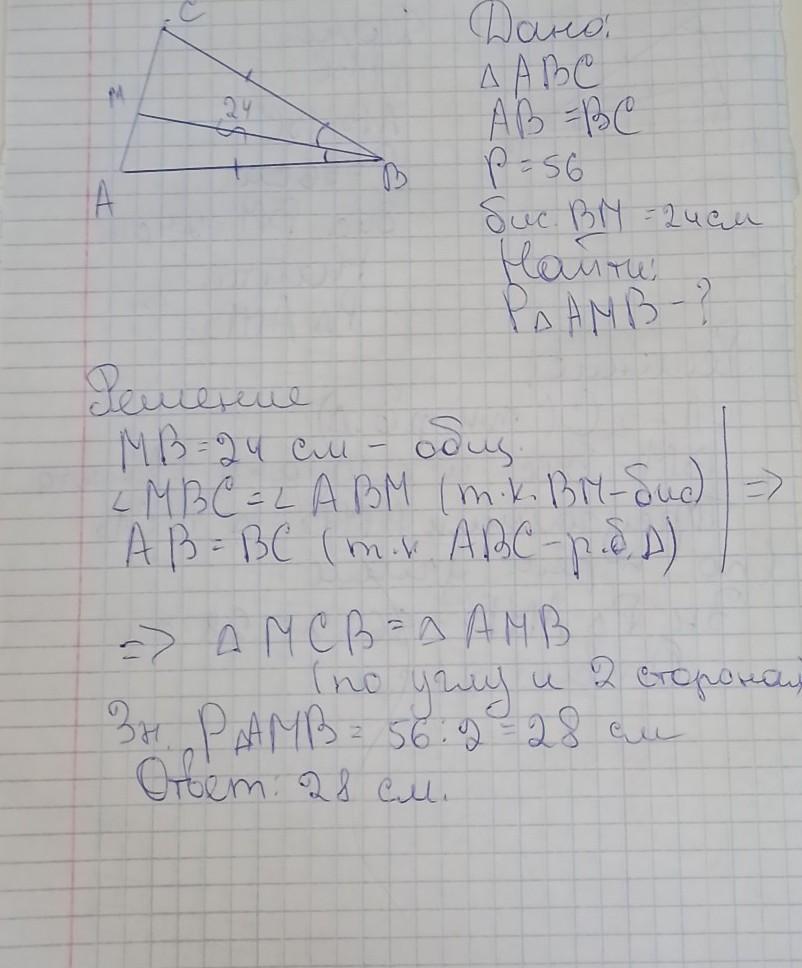 C
M
24
A
B
Дано:
Δ ABC
AB = BC
P = 56
бис. BM = 24см
Найти:
PΔ AMB - ?
Решение
MB = 24 см - общ.
∠MBC = ∠ABM (т.к. BM - бис)
AB = BC (т.к. ABC - р.б. Δ)
=>
=> Δ MCB = Δ AMB
(по углу и 2 сторонам
Зн. PΔAMB = 56:2 = 28 см
Ответ: 28 см.